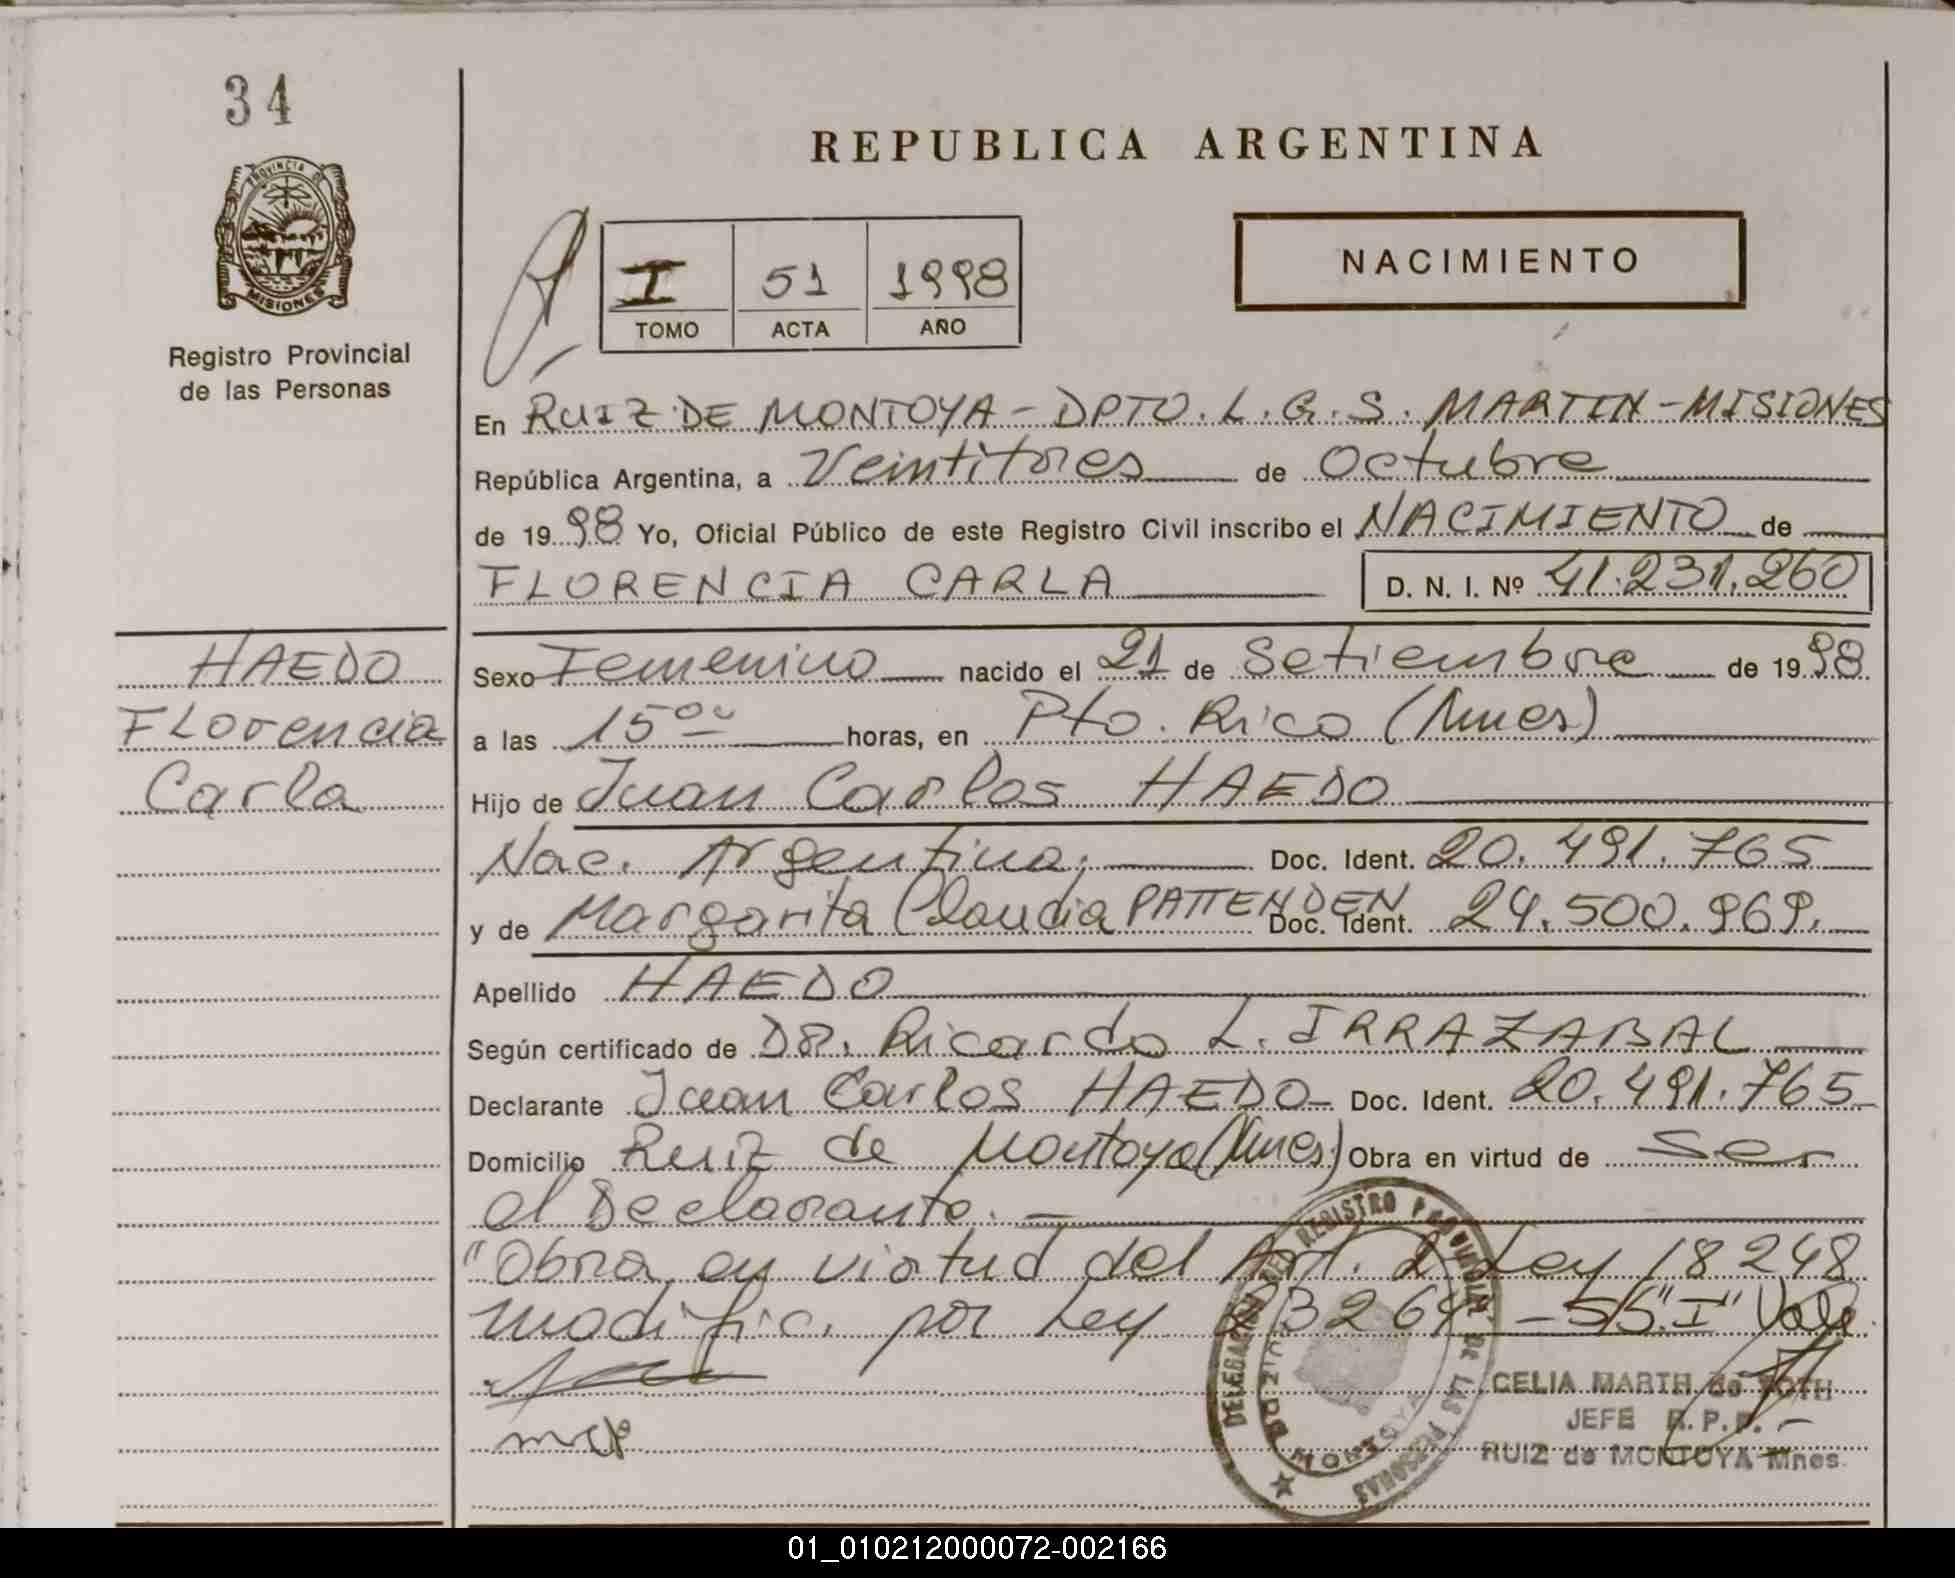 34
REPUBLICA ARGENTINA
PROVINCIA DE
MISIONES
NACIMIENTO
I 51 1998
TOMO ACTA AÑO
Registro Provincial
de las Personas
En RUIZ DE MONTOYA - DPTO. L. G. S. MARTIN - MISIONES
República Argentina, a Veintitres de Octubre
de 1998 Yo, Oficial Público de este Registro Civil inscribo el NACIMIENTO de
FLORENCIA CARLA D. N. I. Nº 41.231.260
HAEDO
Florencia
Carla
Sexo Femenino nacido el 21 de Setiembre de 1998
a las 15 00 horas, en Pto. Rico (Mnes)
Hijo de Juan Carlos HAEDO
Nac. Argentina. Doc. Ident. 20.491.765
y de Margarita Claudia PATTENDEN Doc. Ident. 24.500.969.
Apellido HAEDO
Según certificado de DR. Ricardo L. IRRAZABAL
Declarante Juan Carlos HAEDO Doc. Ident. 20.491.765
Domicilio Ruiz de Montoya (Mnes) Obra en virtud de ser
el Declarante. -
"Obra en virtud del Art. 2 Ley 18248
modific. por Ley 23264 - S/S "I" Vale
DELEGACION DEL REGISTRO PROVINCIAL DE LAS PERSONAS
RUIZ DE MONTOYA
CELIA MARTH de ROTH
JEFE R.P.P.
RUIZ de MONTOYA Mnes.
01_010212000072-002166